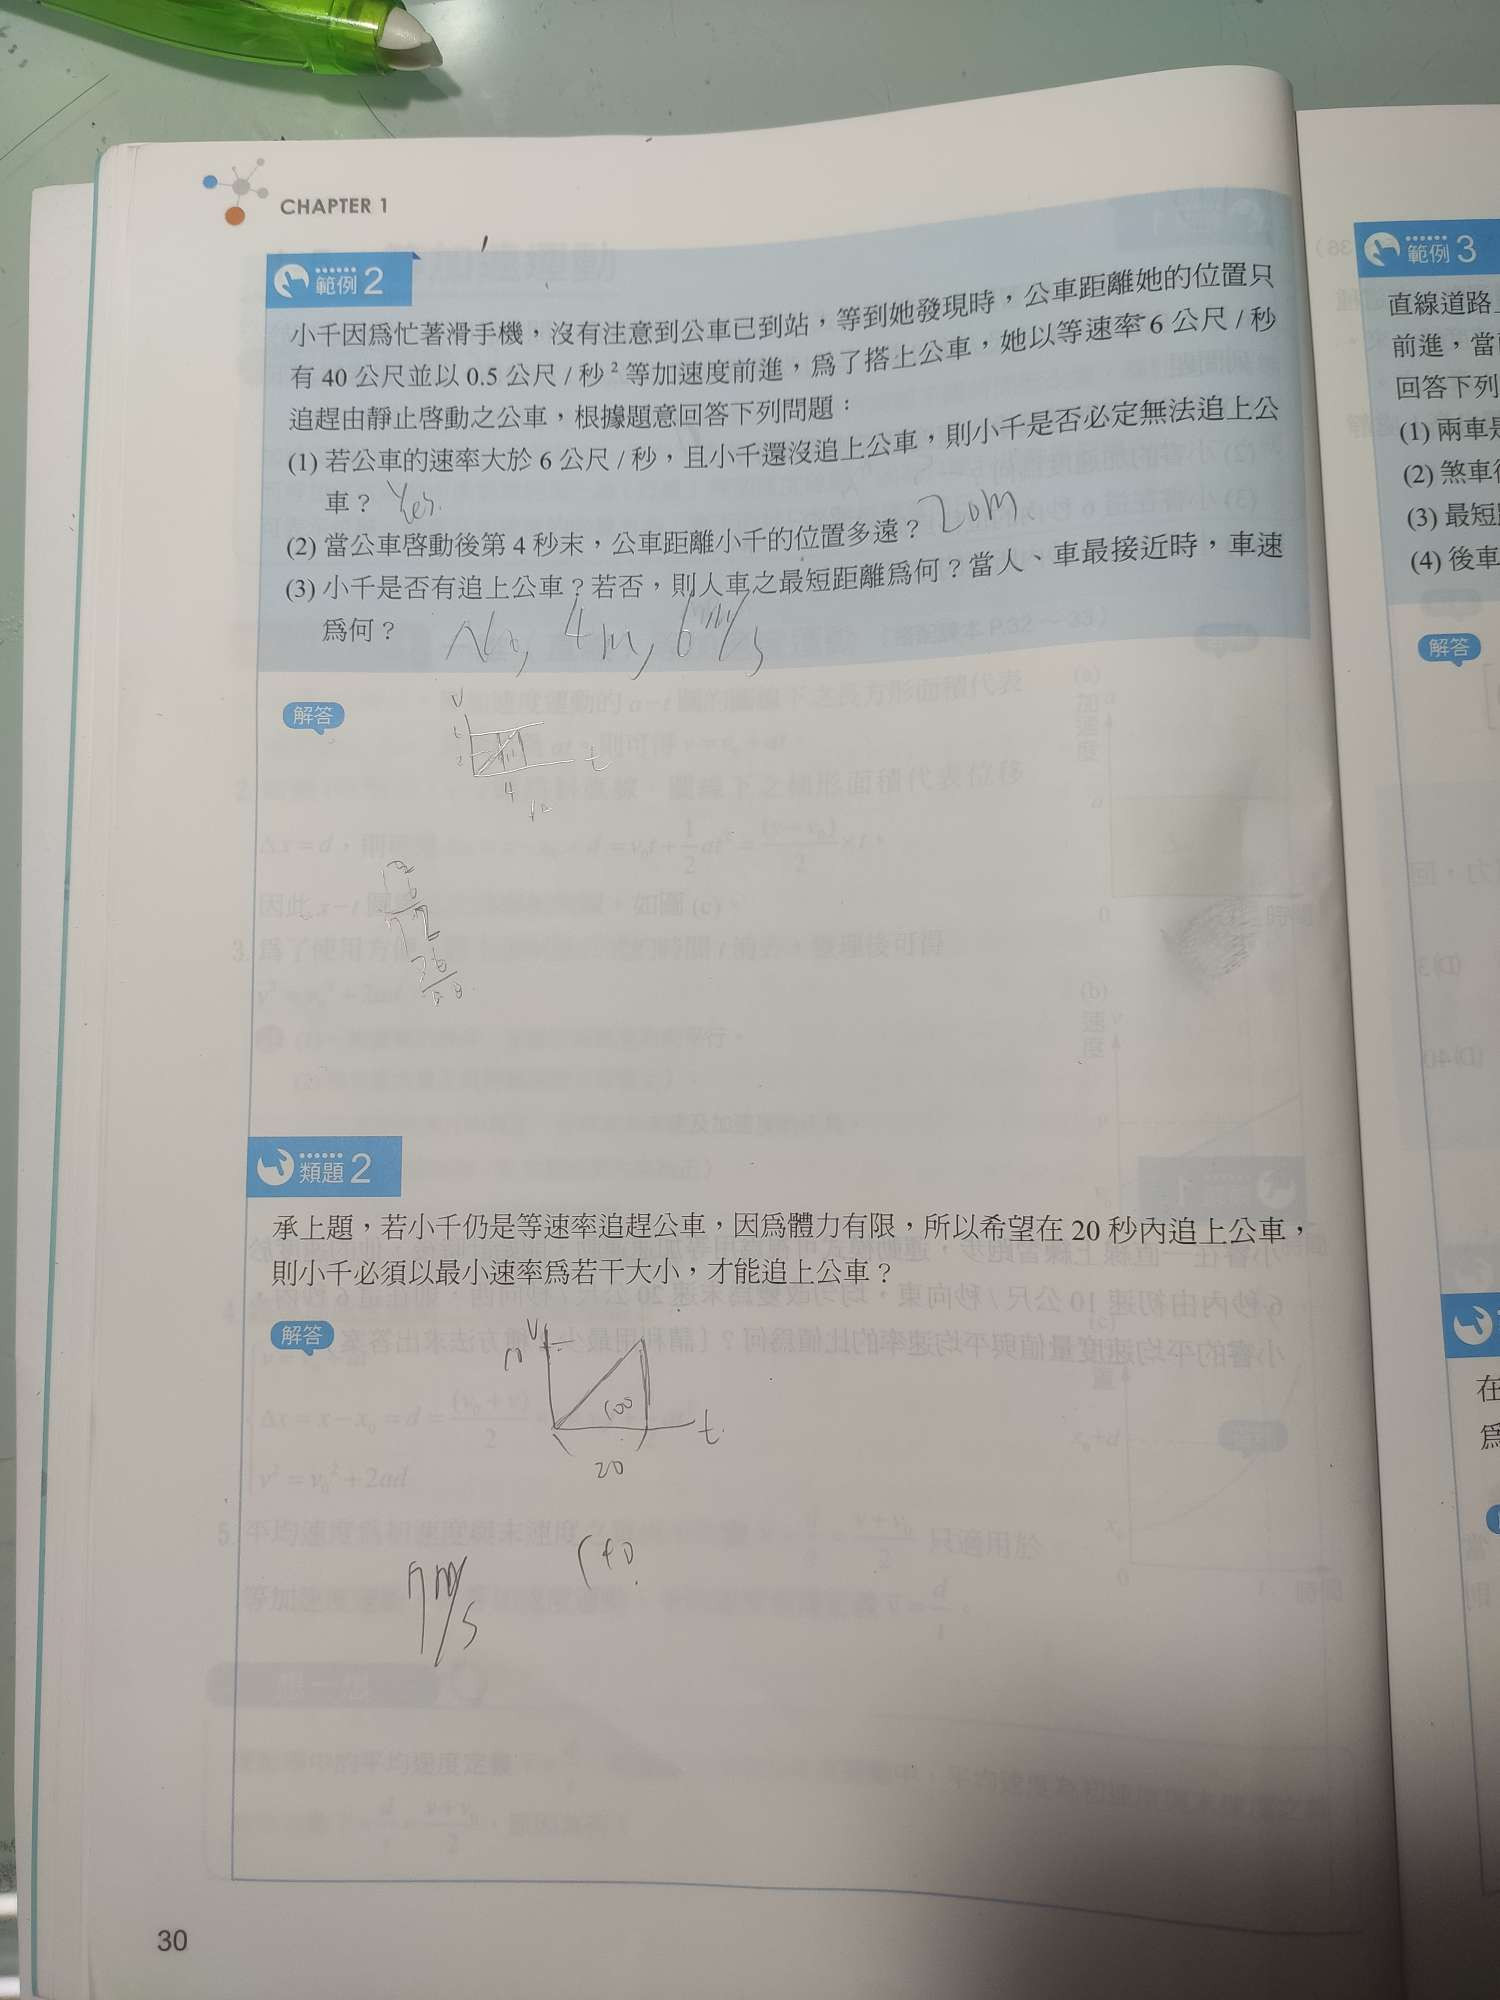 CHAPTER 1
範例 2
小千因為忙著滑手機，沒有注意到公車已到站，等到她發現時，公車距離她的位置只
有 40 公尺並以 0.5 公尺 / 秒² 等加速度前進，為了搭上公車，她以等速率 6 公尺 / 秒
追趕由靜止啟動之公車，根據題意回答下列問題：
(1) 若公車的速率大於 6 公尺 / 秒，且小千還沒追上公車，則小千是否必定無法追上公
車？ Yes.
(2) 當公車啟動後第 4 秒末，公車距離小千的位置多遠？ 20m
(3) 小千是否有追上公車？若否，則人車之最短距離為何？當人、車最接近時，車速
為何？ No, 4m, 6m/s
解答
v
6
2
t
4
12
6
72
36
類題 2
承上題，若小千仍是等速率追趕公車，因為體力有限，所以希望在 20 秒內追上公車，
則小千必須以最小速率為若干大小，才能追上公車？
解答
v
10
100
t
20
140
7m/s
30
範例 3
直線道路上
前進，當
回答下列
(1) 兩車是
(2) 煞車後
(3) 最短
(4) 後車
解答
在
為